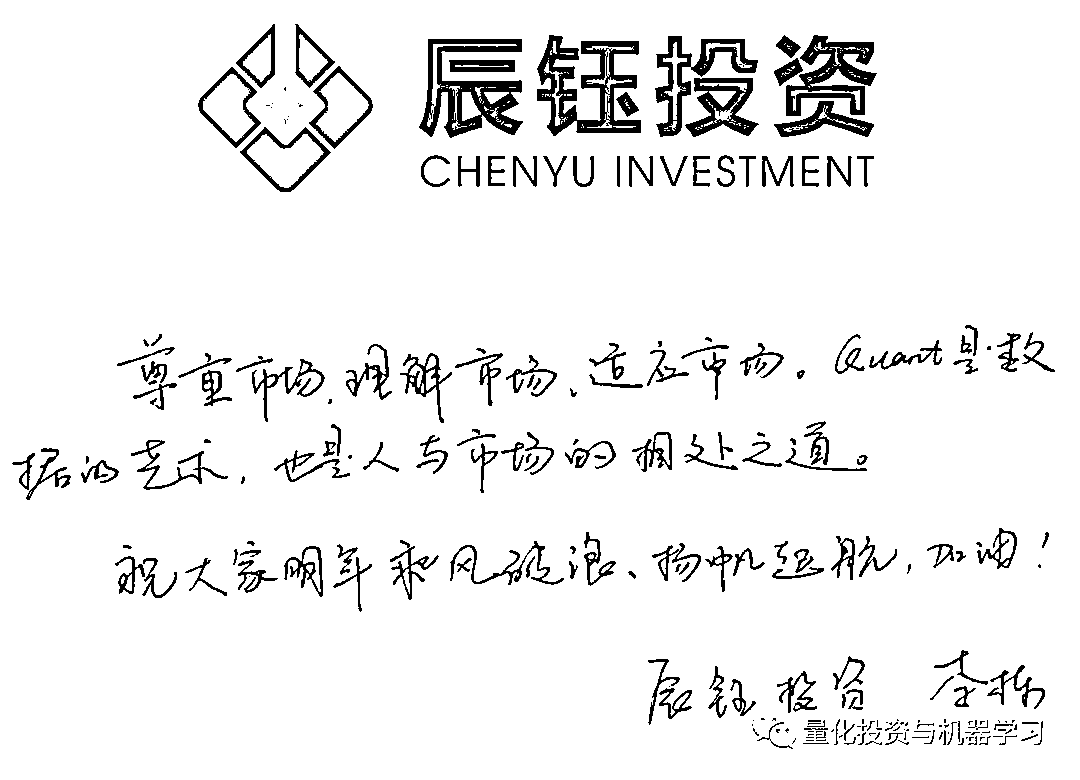 辰钰投资
CHENYU INVESTMENT
尊重市场、理解市场、适应市场。Quant是数
据的艺术，也是人与市场的相处之道。
祝大家明年乘风破浪、扬帆起航，加油！
辰钰投资 李栋
量化投资与机器学习